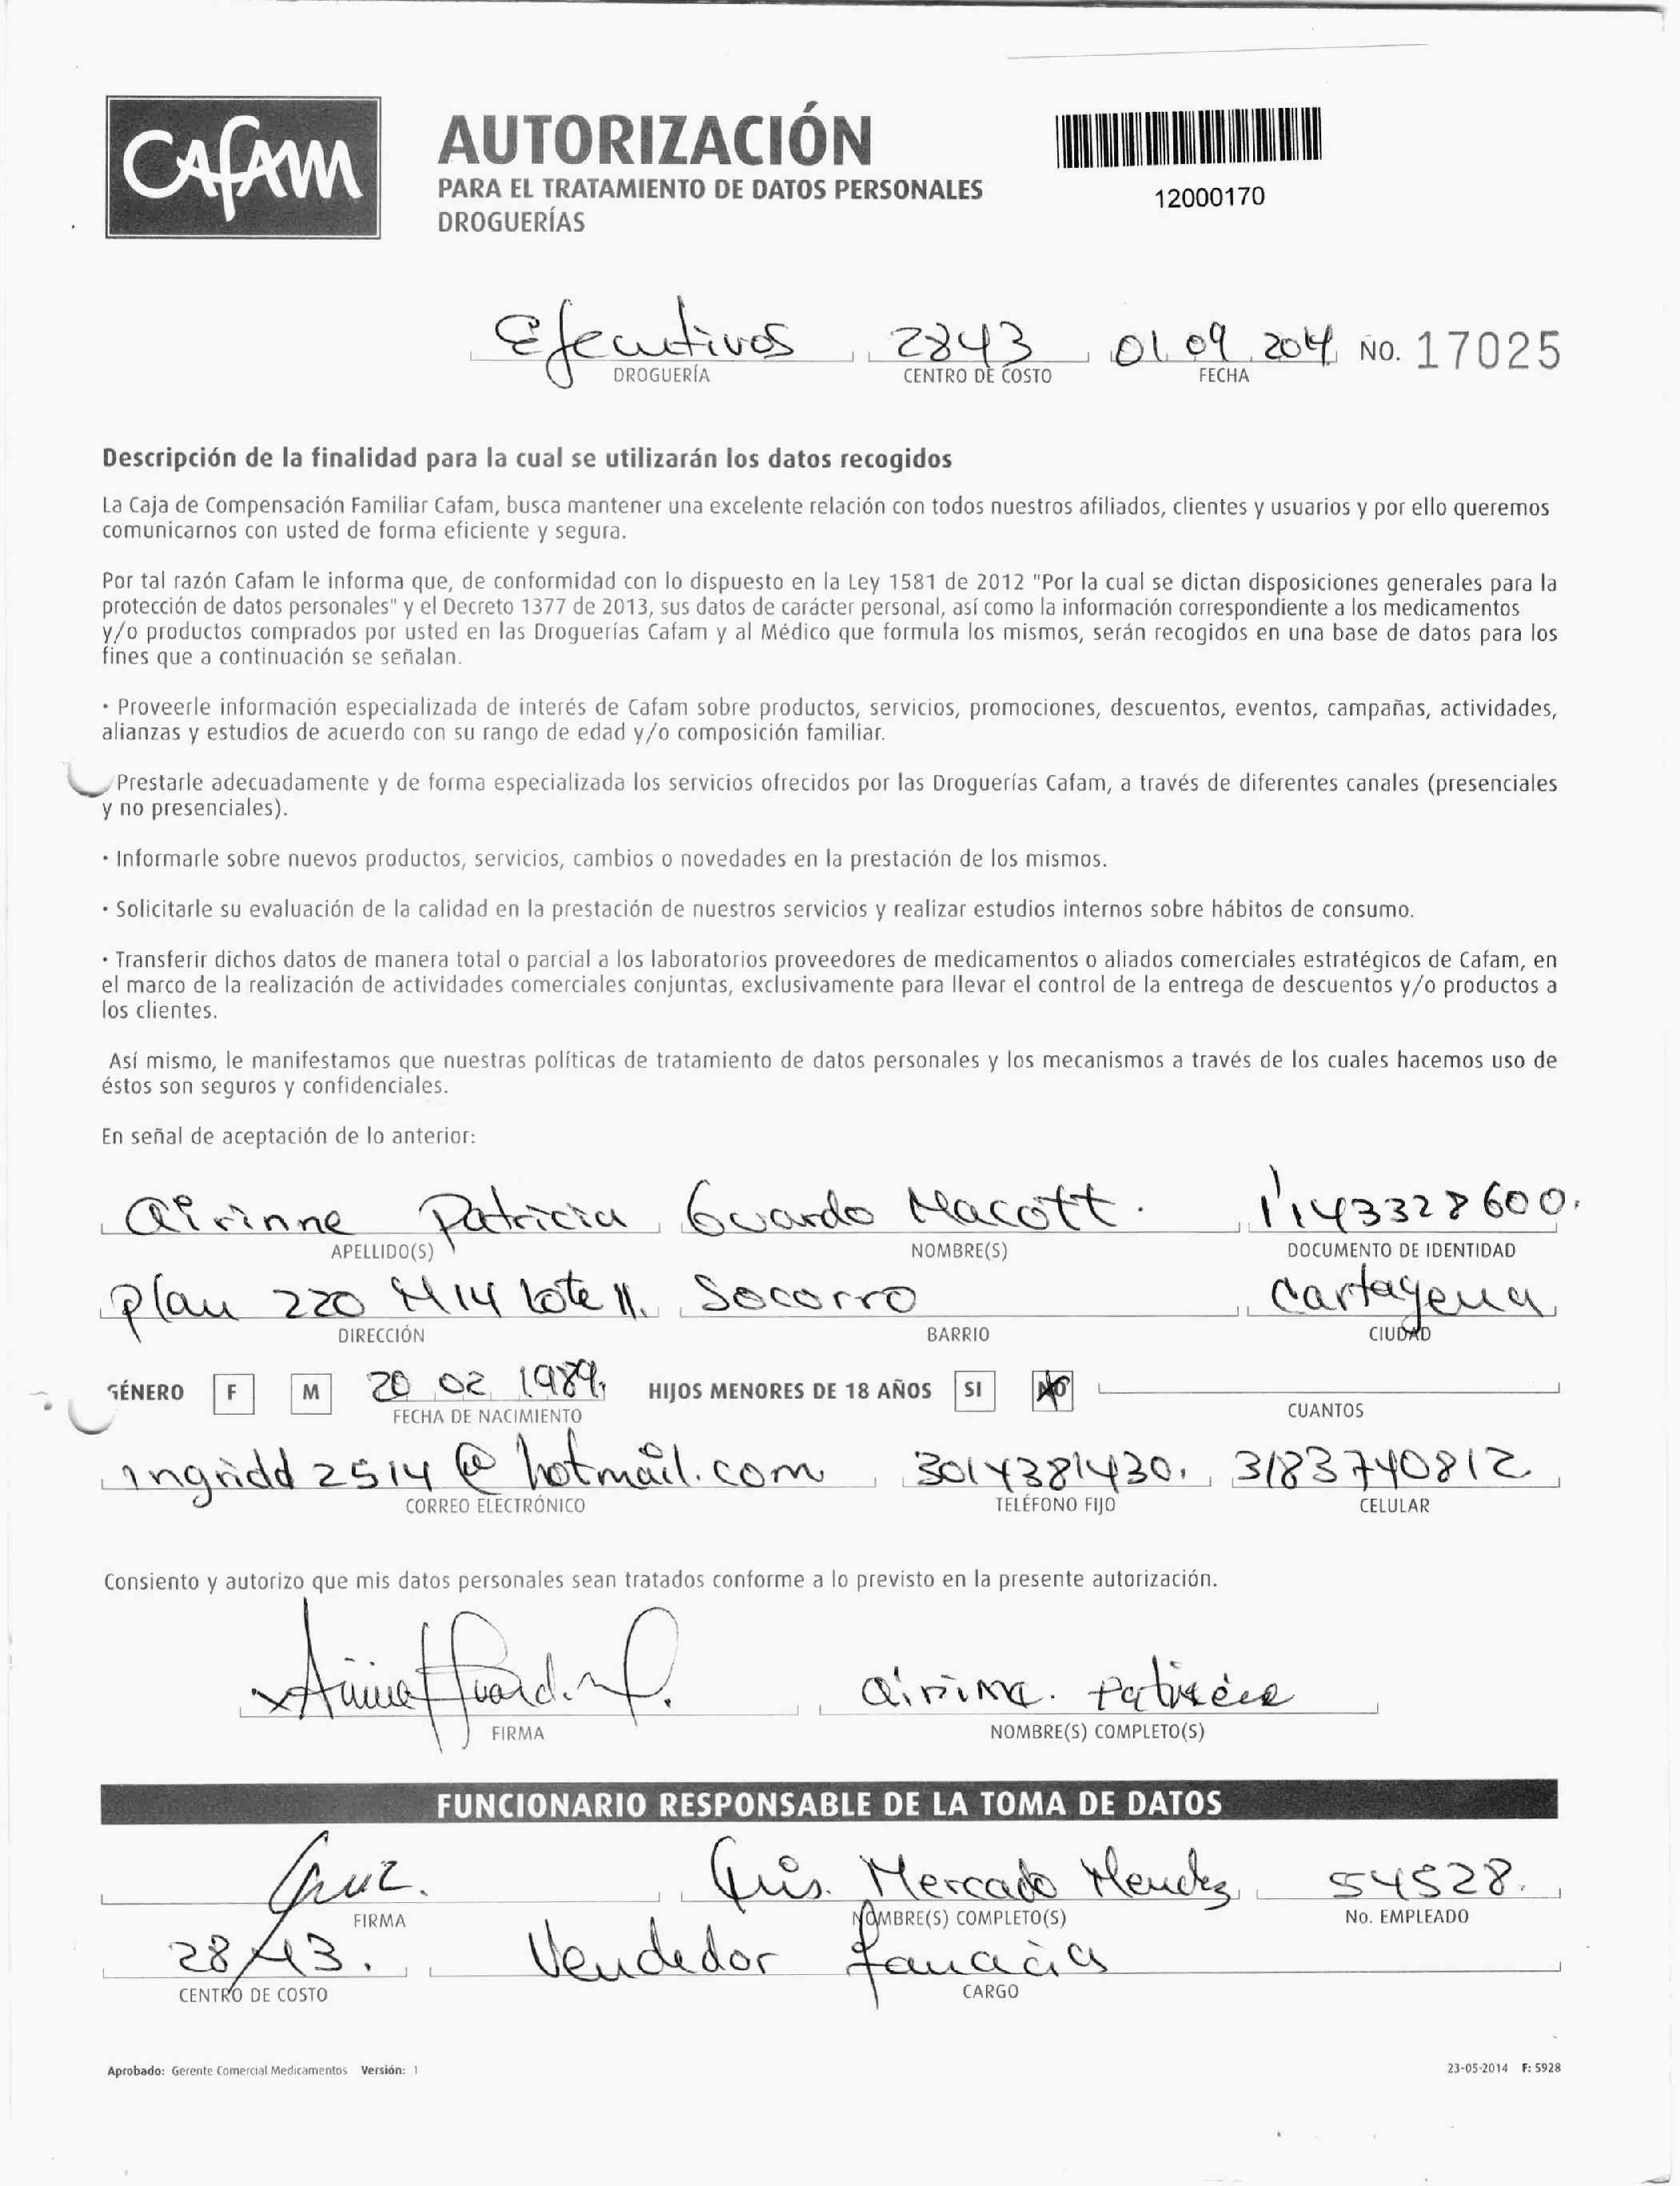 CAFAM
AUTORIZACIÓN
PARA EL TRATAMIENTO DE DATOS PERSONALES
DROGUERÍAS
12000170
Efecutivos 2843 01 09 2014 NO. 17025
DROGUERÍA CENTRO DE COSTO FECHA
Descripción de la finalidad para la cual se utilizarán los datos recogidos
La Caja de Compensación Familiar Cafam, busca mantener una excelente relación con todos nuestros afiliados, clientes y usuarios y por ello queremos
comunicarnos con usted de forma eficiente y segura.
Por tal razón Cafam le informa que, de conformidad con lo dispuesto en la Ley 1581 de 2012 "Por la cual se dictan disposiciones generales para la
protección de datos personales" y el Decreto 1377 de 2013, sus datos de carácter personal, así como la información correspondiente a los medicamentos
y/o productos comprados por usted en las Droguerías Cafam y al Médico que formula los mismos, serán recogidos en una base de datos para los
fines que a continuación se señalan.
· Proveerle información especializada de interés de Cafam sobre productos, servicios, promociones, descuentos, eventos, campañas, actividades,
alianzas y estudios de acuerdo con su rango de edad y/o composición familiar.
Prestarle adecuadamente y de forma especializada los servicios ofrecidos por las Droguerías Cafam, a través de diferentes canales (presenciales
y no presenciales).
· Informarle sobre nuevos productos, servicios, cambios o novedades en la prestación de los mismos.
· Solicitarle su evaluación de la calidad en la prestación de nuestros servicios y realizar estudios internos sobre hábitos de consumo.
· Transferir dichos datos de manera total o parcial a los laboratorios proveedores de medicamentos o aliados comerciales estratégicos de Cafam, en
el marco de la realización de actividades comerciales conjuntas, exclusivamente para llevar el control de la entrega de descuentos y/o productos a
los clientes.
Así mismo, le manifestamos que nuestras políticas de tratamiento de datos personales y los mecanismos a través de los cuales hacemos uso de
éstos son seguros y confidenciales.
En señal de aceptación de lo anterior:
Airinne Patricia Guardo Macott. 1'143328600.
APELLIDO(S) NOMBRE(S) DOCUMENTO DE IDENTIDAD
Plan 220 M14 lote 11. Socorro Cartagena
DIRECCIÓN BARRIO CIUDAD
GÉNERO F M 20 02 1989. HIJOS MENORES DE 18 AÑOS SI NO
FECHA DE NACIMIENTO CUANTOS
ingridd2514@hotmail.com 3014381430. 3183740812
CORREO ELECTRÓNICO TELÉFONO FIJO CELULAR
Consiento y autorizo que mis datos personales sean tratados conforme a lo previsto en la presente autorización.
Patricia
FIRMA NOMBRE(S) COMPLETO(S)
FUNCIONARIO RESPONSABLE DE LA TOMA DE DATOS
Luis. Mercado Mendez 54528.
FIRMA NOMBRE(S) COMPLETO(S) No. EMPLEADO
2843. Vendedor
CENTRO DE COSTO CARGO
Aprobado: Gerente Comercial Medicamentos Versión: 1 23-05-2014 F: 5928